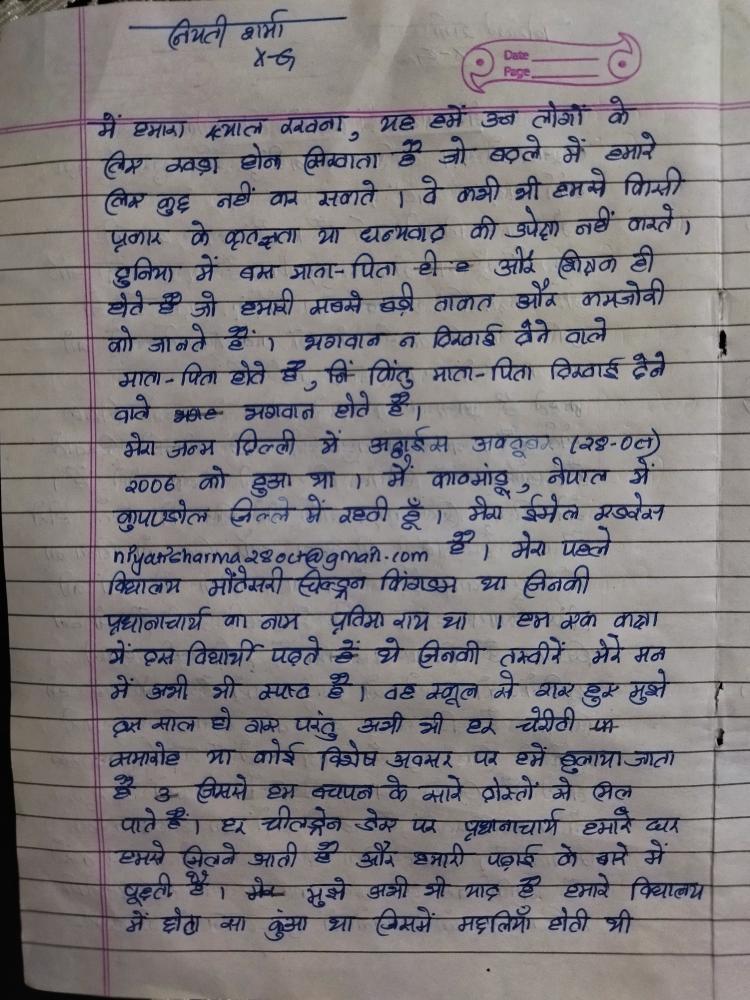 नियती शर्मा
X-G
Date
Page
में हमारा ख्याल रखना, यह हमें उन लोगों के
लिए खड़ा होना सिखाता है जो बदले में हमारे
लिए कुछ नहीं कर सकते । वे कभी भी हमसे किसी
प्रकार के कृतज्ञता या धन्यवाद की उपेक्षा नहीं करते ।
दुनिया में बस माता-पिता ही और शिक्षक ही
होते हैं जो हमारी सबसे बड़ी ताकत और कमजोरी
को जानते हैं । भगवान न दिखाई देने वाले
माता-पिता होते हैं, किंतु माता-पिता दिखाई देने
वाले भगवान होते हैं।
मेरा जन्म दिल्ली में अट्ठाईस अक्टूबर (28-Oct)
2006 को हुआ था । मैं काठमांडू, नेपाल में
कुपण्डोल जिल्ले में रहती हूँ । मेरा ईमेल एडरेस
niyatisharma28oct@gmail.com है । मेरा पहले
विद्यालय मोंटेसरी चिल्ड्रन किंगडम था जिनकी
प्रधानाचार्य का नाम प्रतिमा राय था । हम एक कक्षा
में दस विद्यार्थी पढ़ते थे जिनकी तस्वीरें मेरे मन
में अभी भी स्पष्ट है । वह स्कूल से गए हुए मुझे
दस साल हो गए परंतु अभी भी हर चेरीटी
समारोह या कोई विशेष अवसर पर हमें बुलाया जाता
है जिससे हम बचपन के सारे दोस्तों से मिल
पाते हैं। हर चील्ड्रेन डेस पर प्रधानाचार्य हमारे घर
हमसे मिलने आती है और हमारी पढ़ाई के बारे में
पूछती हैं । मुझे अभी भी याद है हमारे विद्यालय
में छोटा सा कुंआ था जिसमें मछलियाँ होती थी